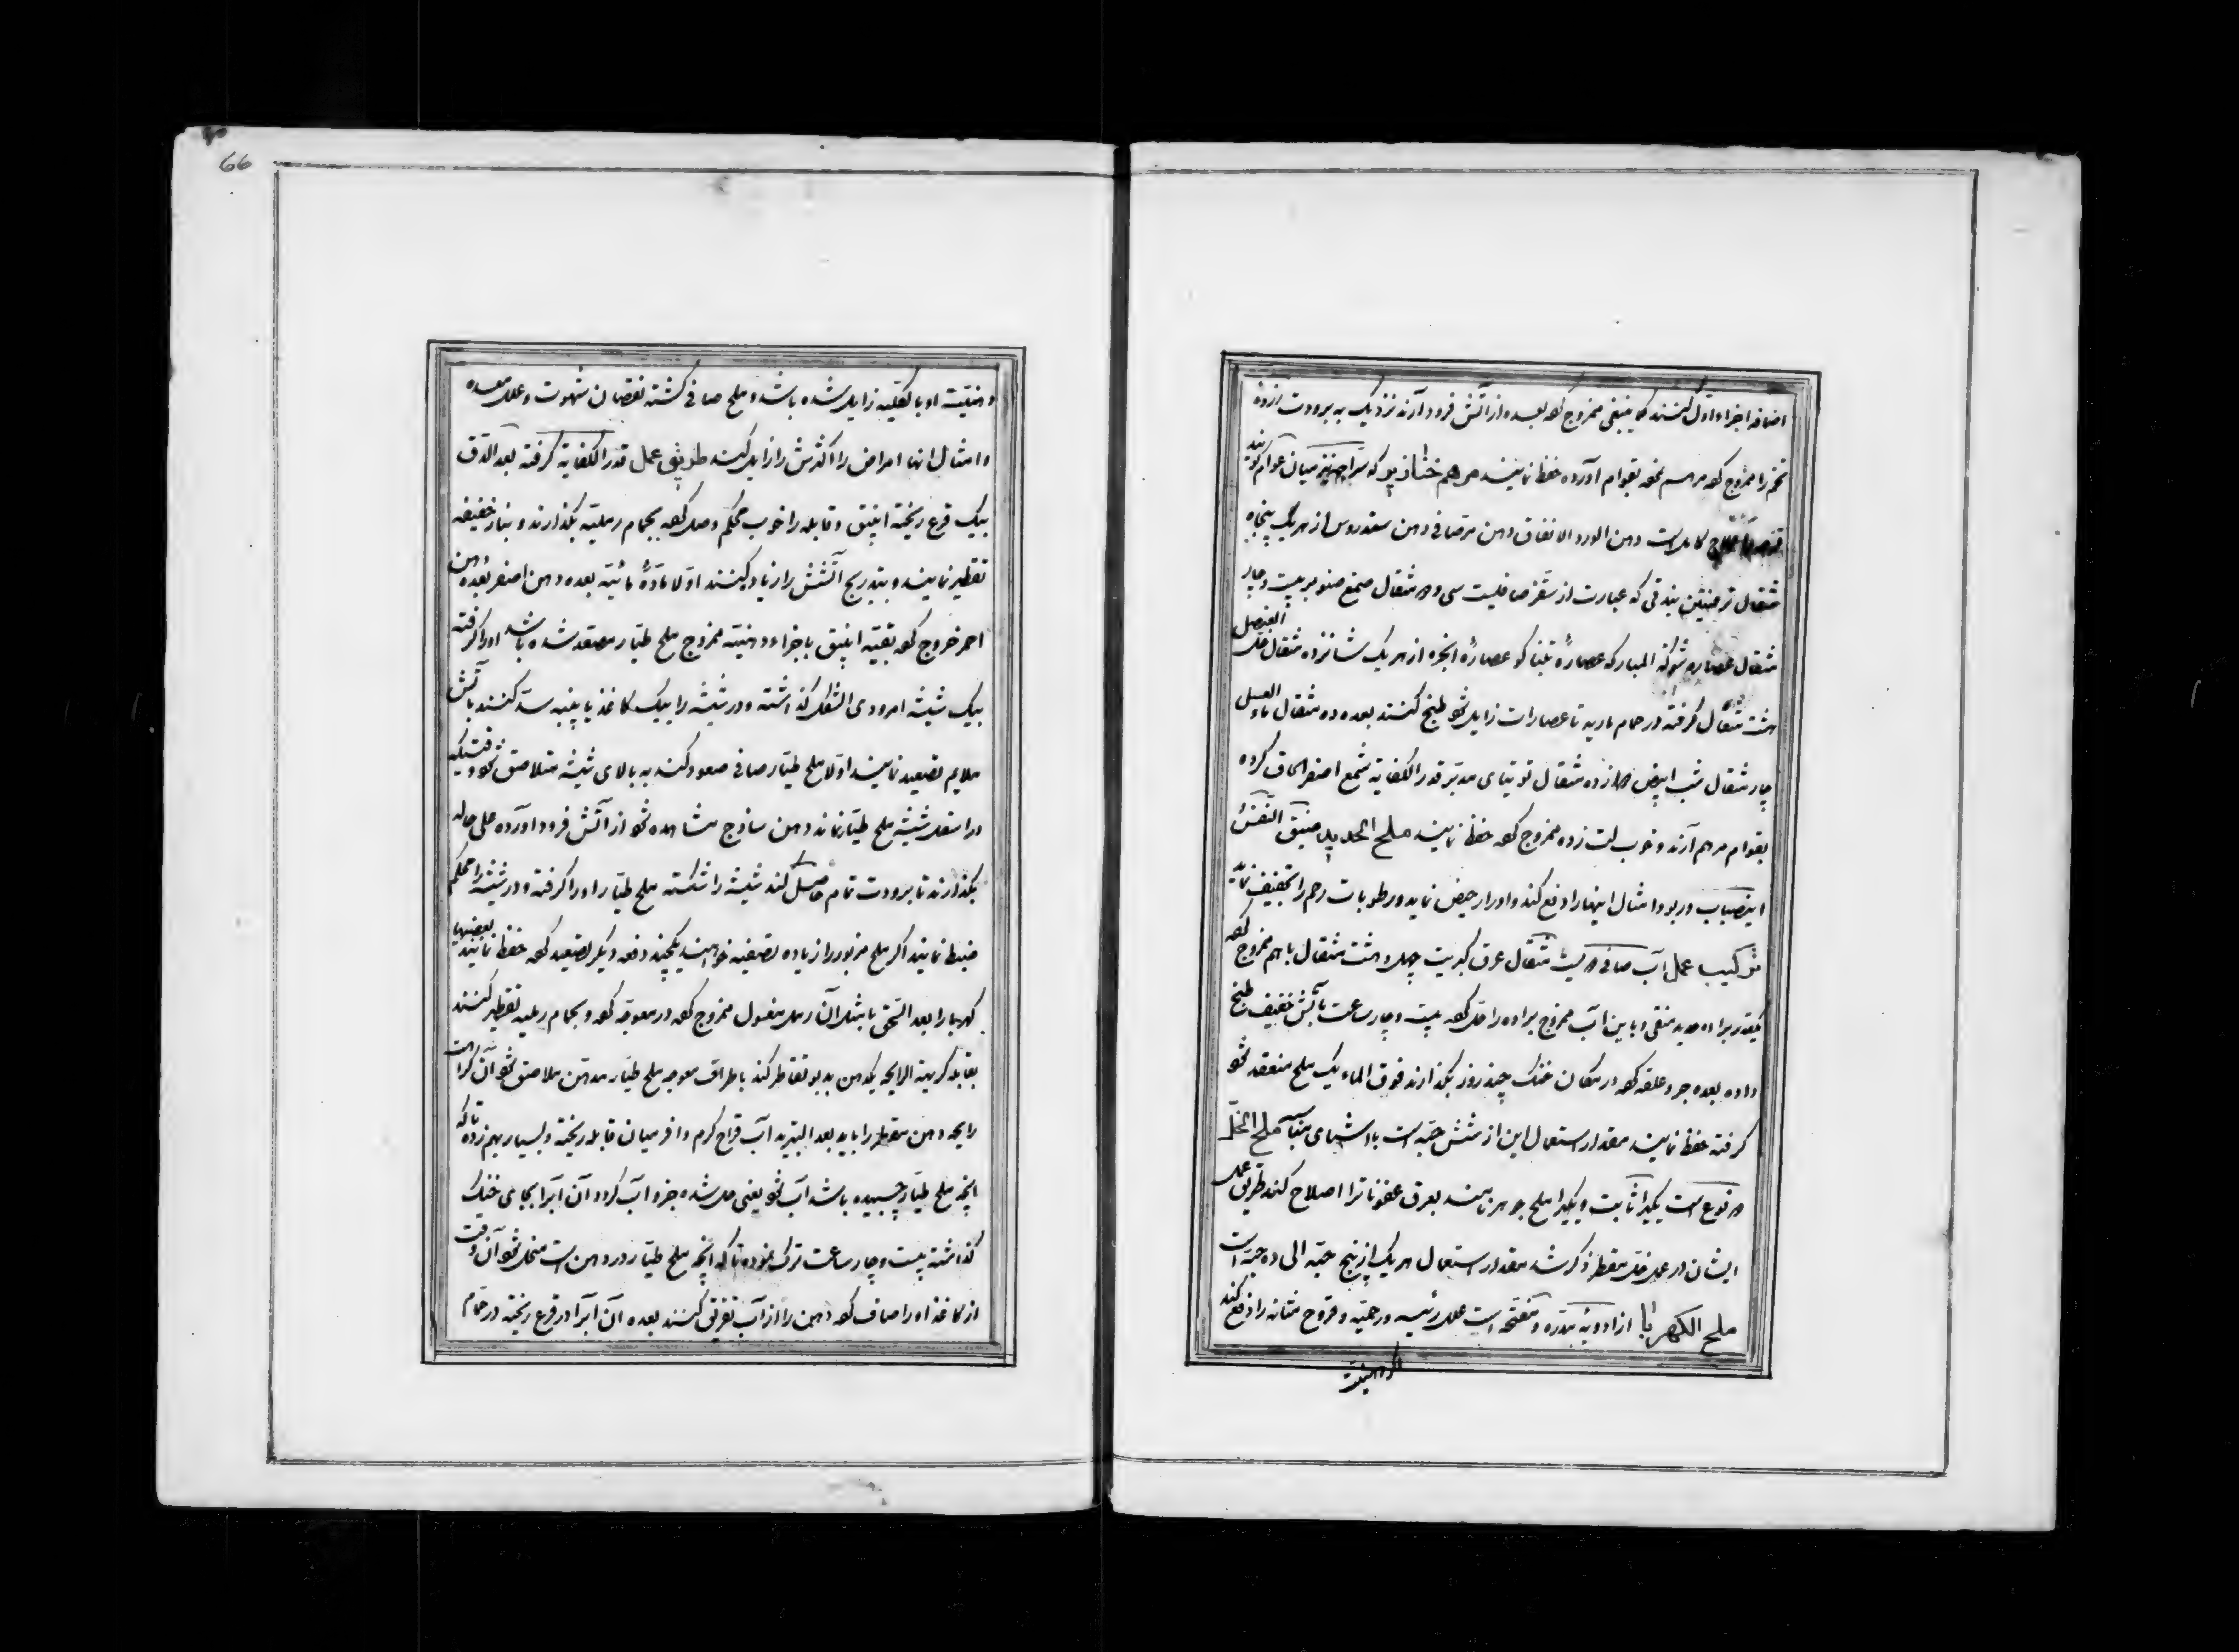 اضافه اجزاء اول کنند کما ینبغی ممزوج کرده بعده از آتش فرود آرند نزدیک به برودت زرده
تخم را ممزوج کرده مرهم نموده بقوام آورده حفظ نمایند مرهم خنازیر که سراجه نیز میان عوام گویند
علاج کامل است دهن الورد الانفاق دهن مر صافی دهن سندروس از هر یک پنجاه
مثقال ترمنتین بندقی که عبارت از سقز صافیست سی و دو مثقال صمغ صنوبر بیست و چار
مثقال عصاره شوکة المبارکه عصارهٔ تنباکو عصارهٔ انجره از هر یک شانزده مثقال خل العنصل
هشت مثقال گرفته در حمام ماریه تا عصارات زایل شود طبخ کنند بعده ده مثقال ماء العسل
چار مثقال شب ابیض دوازده مثقال توتیای مدبر قدر الکفایة شمع اصفر الحاق کرده
بقوام مرهم آرند و خوب لت زده ممزوج کرده حفظ نمایند ملح الحدید ضیق النفس
انتصاب و ربو و امثال اینها را دفع کند و ادرار حیض نماید و رطوبات رحم را تجفیف نماید
ترکیب عمل آب صافی دویست مثقال عرق کبریت چهل و هشت مثقال باهم ممزوج کرده
یکقدر براده حدید منقی و باین آب ممزوج براده را حل کرده بیست و چار ساعت بآتش خفیف طبخ
داده بعده جر و علقه کرده در مکان خنک چند روز بگذارند فوق الماء یک ملح منعقد شود
گرفته حفظ نمایند مقدار استعمال این از شش حبه است با اشیای مناسبه ملح الخل
دو نوع است یکی را ثابت و یکی را ملح جوهر نامند بعرق عفونات را اصلاح کند طریق عمل
ایشان در عمل خل مقطر ذکر شد مقدار استعمال هر یک از پنج حبه الی ده حبه است
ملح الکهربا از ادویهٔ مدره و مفتحه است علل رئیسه و رحمیه و قروح مثانه را دفع کند
اگر دهنیت
دهنیت او بالکلیه زایل شده باشد و ملح صافی گشته نقصان شهوت و علل معده
و امثال انها امراض را اکثرش را زایل کند طریق عمل قدر الکفایة گرفته بعد الدق
بیک قرع ریخته انبیق و قابله را خوب محکم وصل کرده بحمام رملیه بگذارند و بنار خفیفه
تقطیر نمایند و بتدریج آتشش را زیاد کنند اولا مادهٔ مائیه بعده دهن اصفر بعده دهن
احمر خروج کرده بقیه انبیق باجزاء دهنیه ممزوج ملح طیار منعقد شده باشد او را گرفته
بیک شیشه امرودی الشکل گذاشته و در شیشه را بیک کاغذ یا پنبه سد کنند بآتش
ملایم تصعید نمایند اولا ملح طیار صافی صعود کند به بالای شیشه متلاصق شود وقتیکه
در اسفل شیشه ملح طیار نماند دهن ساذج مشاهده شود از آتش فرود آورده علی حاله
بگذارند تا برودت تمام حاصل کند شیشه را شکسته ملح طیار او را گرفته و در شیشه را محکم
ضبط نمایند اگر ملح مزبور را زیاده تصفیه خواهند یکچند دفعه دیگر تصعید کرده حفظ نمایند بعضیها
کهربا را بعد السحق با مثل آن رمل مغسول ممزوج کرده در معوجه کرده و بحمام رملیه تقطیر کنند
بقابله کریهة الرایحه یک دهن بدبو تقاطر کند باطراف معوجه ملح طیار مدهن ملاصق شود آن کراهت
رایحه دهن مقطر را باید بعد التبرید آب قراح گرم وافر میان قابله ریخته و بسیار بهم زده تا که
انچه ملح طیار چسبیده باشد آب شود یعنی حل شده جزو آب گردد آن آب را بجای خنک
گذاشته بیست و چار ساعت ترک نموده تا که انچه ملح طیار در دهن است منحل شود آن وقت
از کاغذ او را صاف کرده دهن را از آب تفریق کنند بعده آن آب را در قرع ریخته در حمام
66